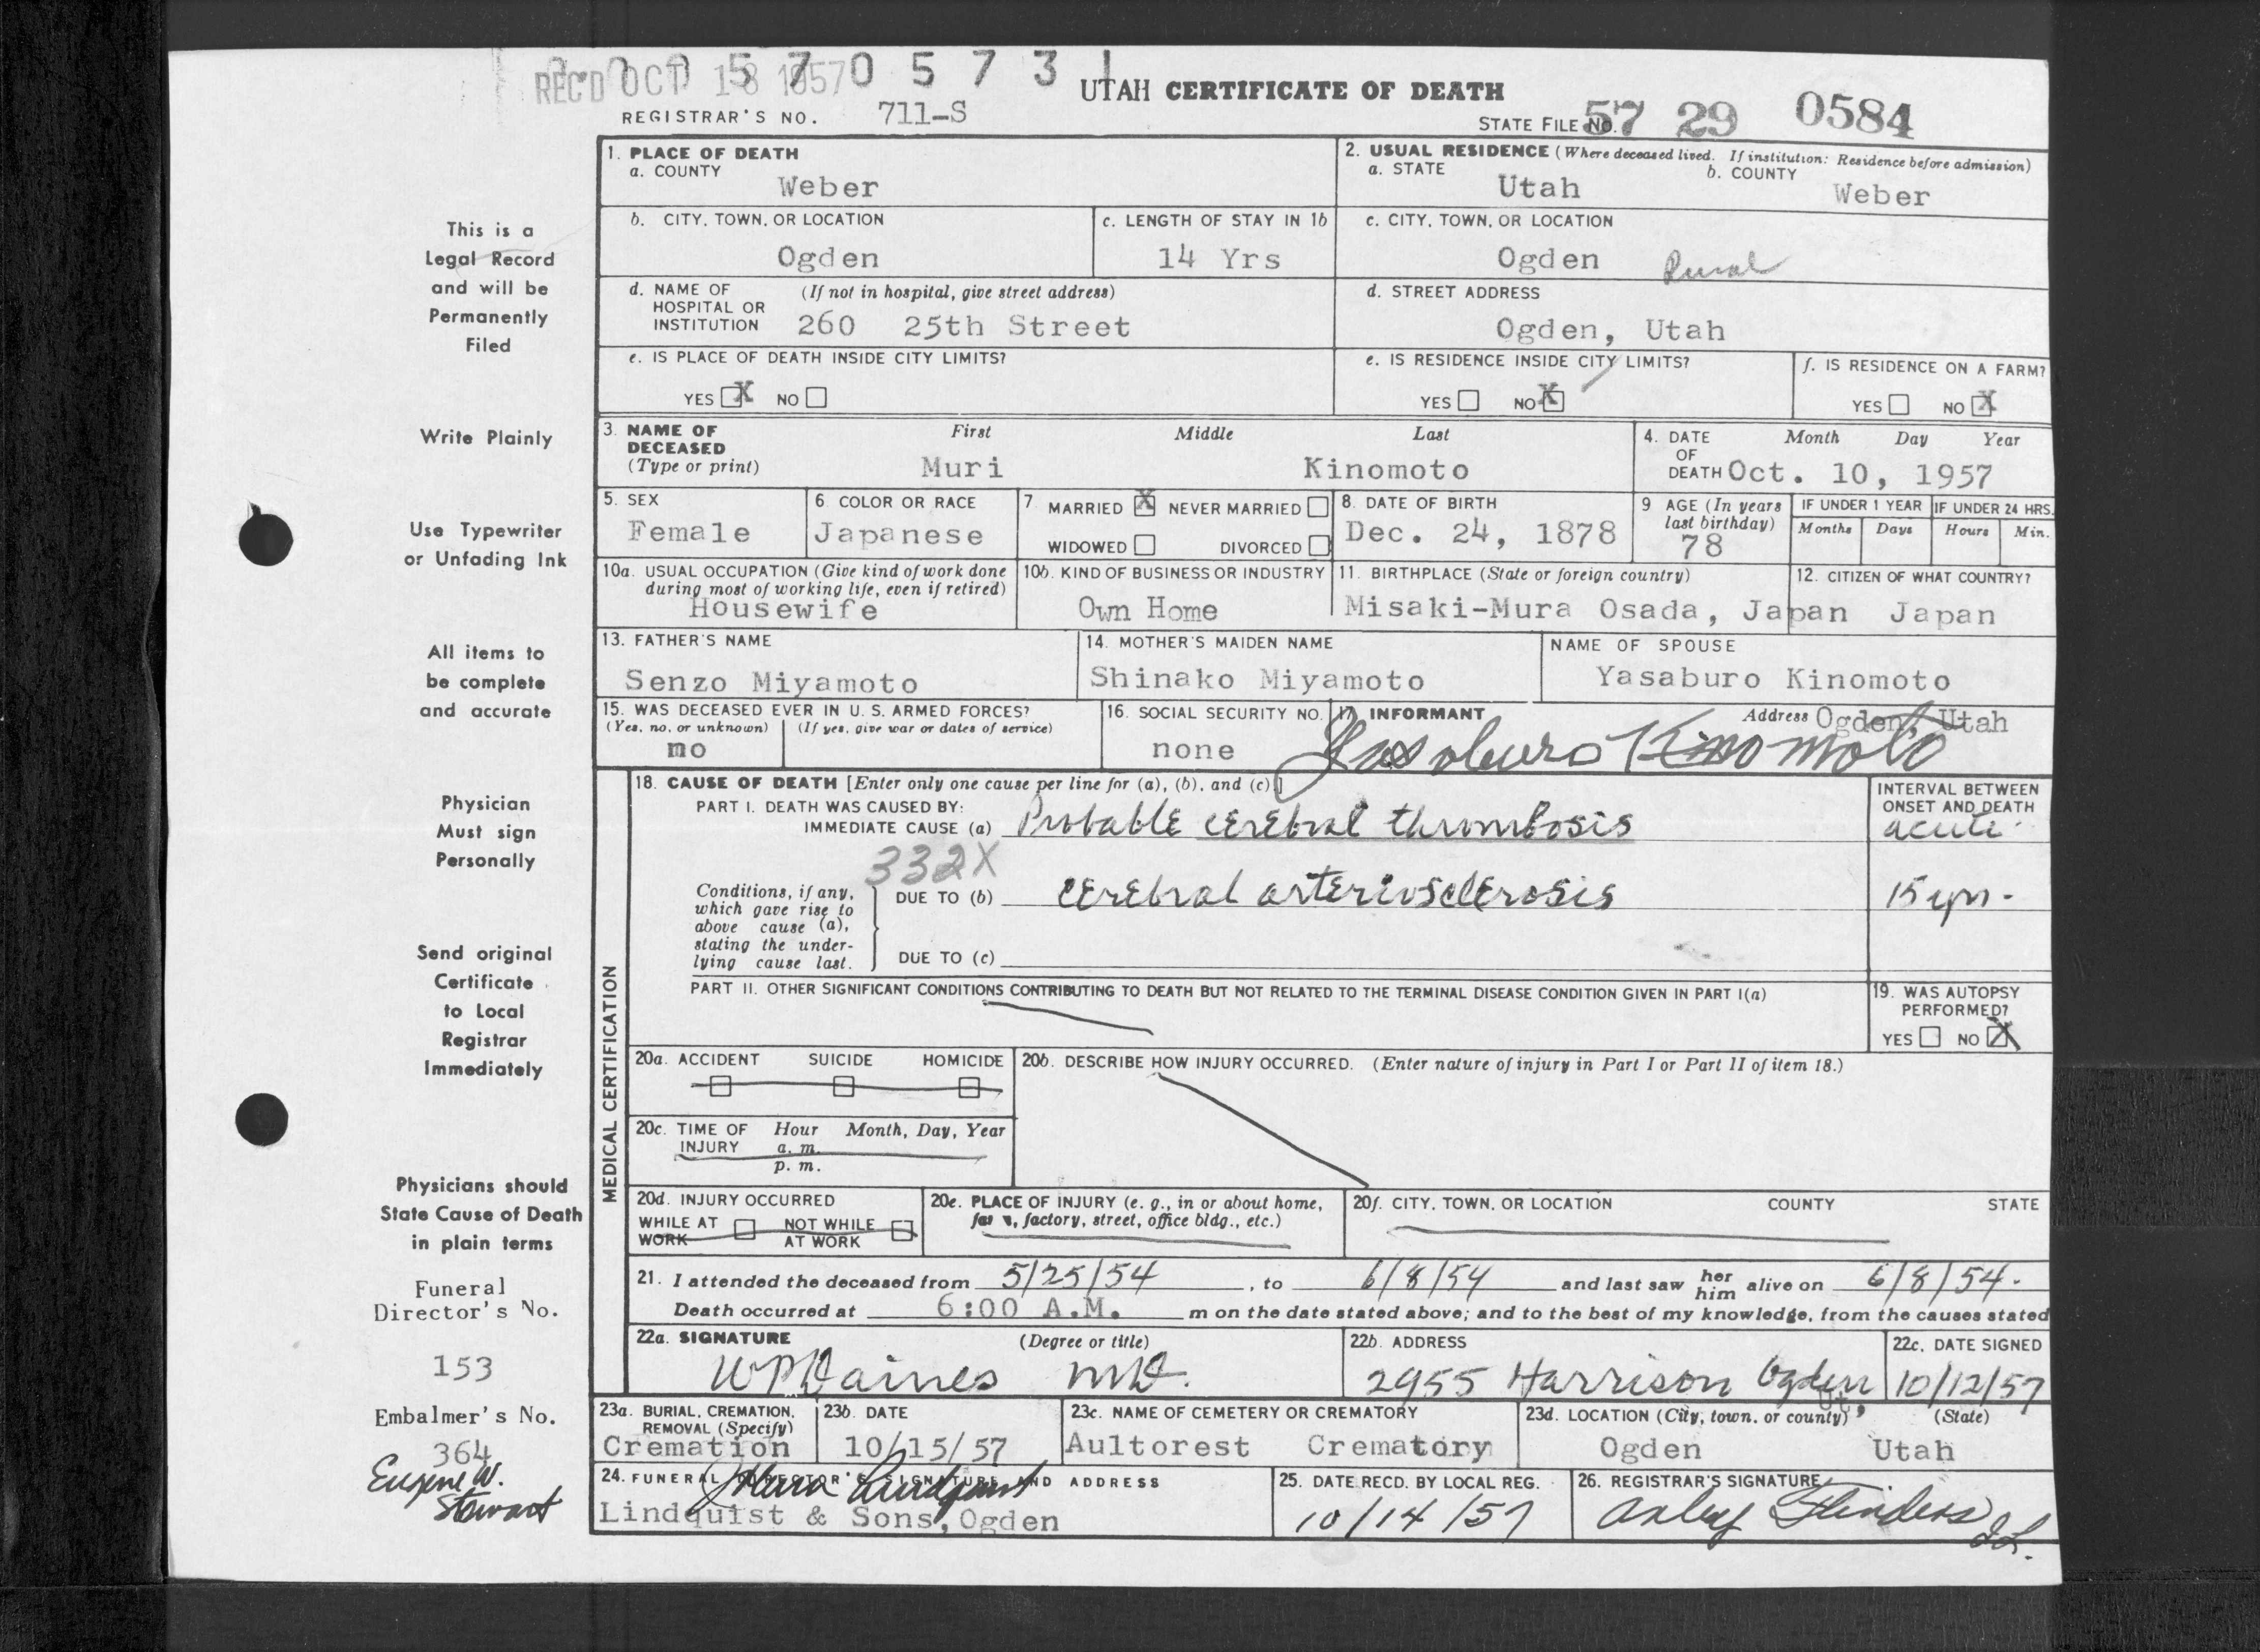 REC'D OCT 18 1957 0 5 7 3 1
UTAH CERTIFICATE OF DEATH
REGISTRAR'S NO. 711-S
STATE FILE NO. 57 29 0584
1. PLACE OF DEATH
a. COUNTY
Weber
2. USUAL RESIDENCE (Where deceased lived. If institution: Residence before admission)
a. STATE Utah b. COUNTY Weber
b. CITY, TOWN, OR LOCATION
Ogden
c. LENGTH OF STAY IN 1b
14 Yrs
c. CITY, TOWN, OR LOCATION
Ogden Rural
d. NAME OF HOSPITAL OR INSTITUTION (If not in hospital, give street address)
260 25th Street
d. STREET ADDRESS
Ogden, Utah
e. IS PLACE OF DEATH INSIDE CITY LIMITS?
YES X NO
e. IS RESIDENCE INSIDE CITY LIMITS?
YES NO X
f. IS RESIDENCE ON A FARM?
YES NO X
3. NAME OF DECEASED (Type or print)
First Middle Last
Muri Kinomoto
4. DATE OF DEATH Month Day Year
Oct. 10, 1957
5. SEX
Female
6. COLOR OR RACE
Japanese
7 MARRIED X NEVER MARRIED
WIDOWED DIVORCED
8. DATE OF BIRTH
Dec. 24, 1878
9 AGE (In years last birthday)
78
IF UNDER 1 YEAR
Months Days
IF UNDER 24 HRS.
Hours Min.
10a. USUAL OCCUPATION (Give kind of work done during most of working life, even if retired)
Housewife
10b. KIND OF BUSINESS OR INDUSTRY
Own Home
11. BIRTHPLACE (State or foreign country)
Misaki-Mura Osada, Japan
12. CITIZEN OF WHAT COUNTRY?
Japan
13. FATHER'S NAME
Senzo Miyamoto
14. MOTHER'S MAIDEN NAME
Shinako Miyamoto
NAME OF SPOUSE
Yasaburo Kinomoto
15. WAS DECEASED EVER IN U. S. ARMED FORCES?
(Yes, no, or unknown) (If yes, give war or dates of service)
mo
16. SOCIAL SECURITY NO.
none
17. INFORMANT Address Ogden, Utah
Yasaburo Kinomoto
MEDICAL CERTIFICATION
18. CAUSE OF DEATH [Enter only one cause per line for (a), (b), and (c).]
PART I. DEATH WAS CAUSED BY:
IMMEDIATE CAUSE (a) Probable cerebral thrombosis
332X
Conditions, if any, which gave rise to above cause (a), stating the underlying cause last.
DUE TO (b) cerebral arteriosclerosis
DUE TO (c)
INTERVAL BETWEEN ONSET AND DEATH
acute
15 yrs.
PART II. OTHER SIGNIFICANT CONDITIONS CONTRIBUTING TO DEATH BUT NOT RELATED TO THE TERMINAL DISEASE CONDITION GIVEN IN PART I(a)
19. WAS AUTOPSY PERFORMED?
YES NO X
20a. ACCIDENT SUICIDE HOMICIDE
20b. DESCRIBE HOW INJURY OCCURRED. (Enter nature of injury in Part I or Part II of item 18.)
20c. TIME OF INJURY Hour Month, Day, Year
a. m.
p. m.
20d. INJURY OCCURRED
WHILE AT WORK NOT WHILE AT WORK
20e. PLACE OF INJURY (e. g., in or about home, factory, street, office bldg., etc.)
20f. CITY, TOWN, OR LOCATION COUNTY STATE
21. I attended the deceased from 5/25/54, to 6/8/54 and last saw her him alive on 6/8/54.
Death occurred at 6:00 A.M. m on the date stated above; and to the best of my knowledge, from the causes stated
22a. SIGNATURE (Degree or title)
WP Daines MD.
22b. ADDRESS
2955 Harrison Ogden Ut
22c. DATE SIGNED
10/12/57
23a. BURIAL, CREMATION, REMOVAL (Specify)
Cremation
23b. DATE
10/15/57
23c. NAME OF CEMETERY OR CREMATORY
Aultorest Crematory
23d. LOCATION (City, town, or county) (State)
Ogden Utah
24. FUNERAL DIRECTOR'S SIGNATURE AND ADDRESS
Lindquist & Sons, Ogden
25. DATE RECD. BY LOCAL REG.
10/14/57
26. REGISTRAR'S SIGNATURE
Flinders
This is a
Legal Record
and will be
Permanently
Filed
Write Plainly
Use Typewriter
or Unfading Ink
All items to
be complete
and accurate
Physician
Must sign
Personally
Send original
Certificate
to Local
Registrar
Immediately
Physicians should
State Cause of Death
in plain terms
Funeral
Director's No.
153
Embalmer's No.
364
Eugene W.
Stewart